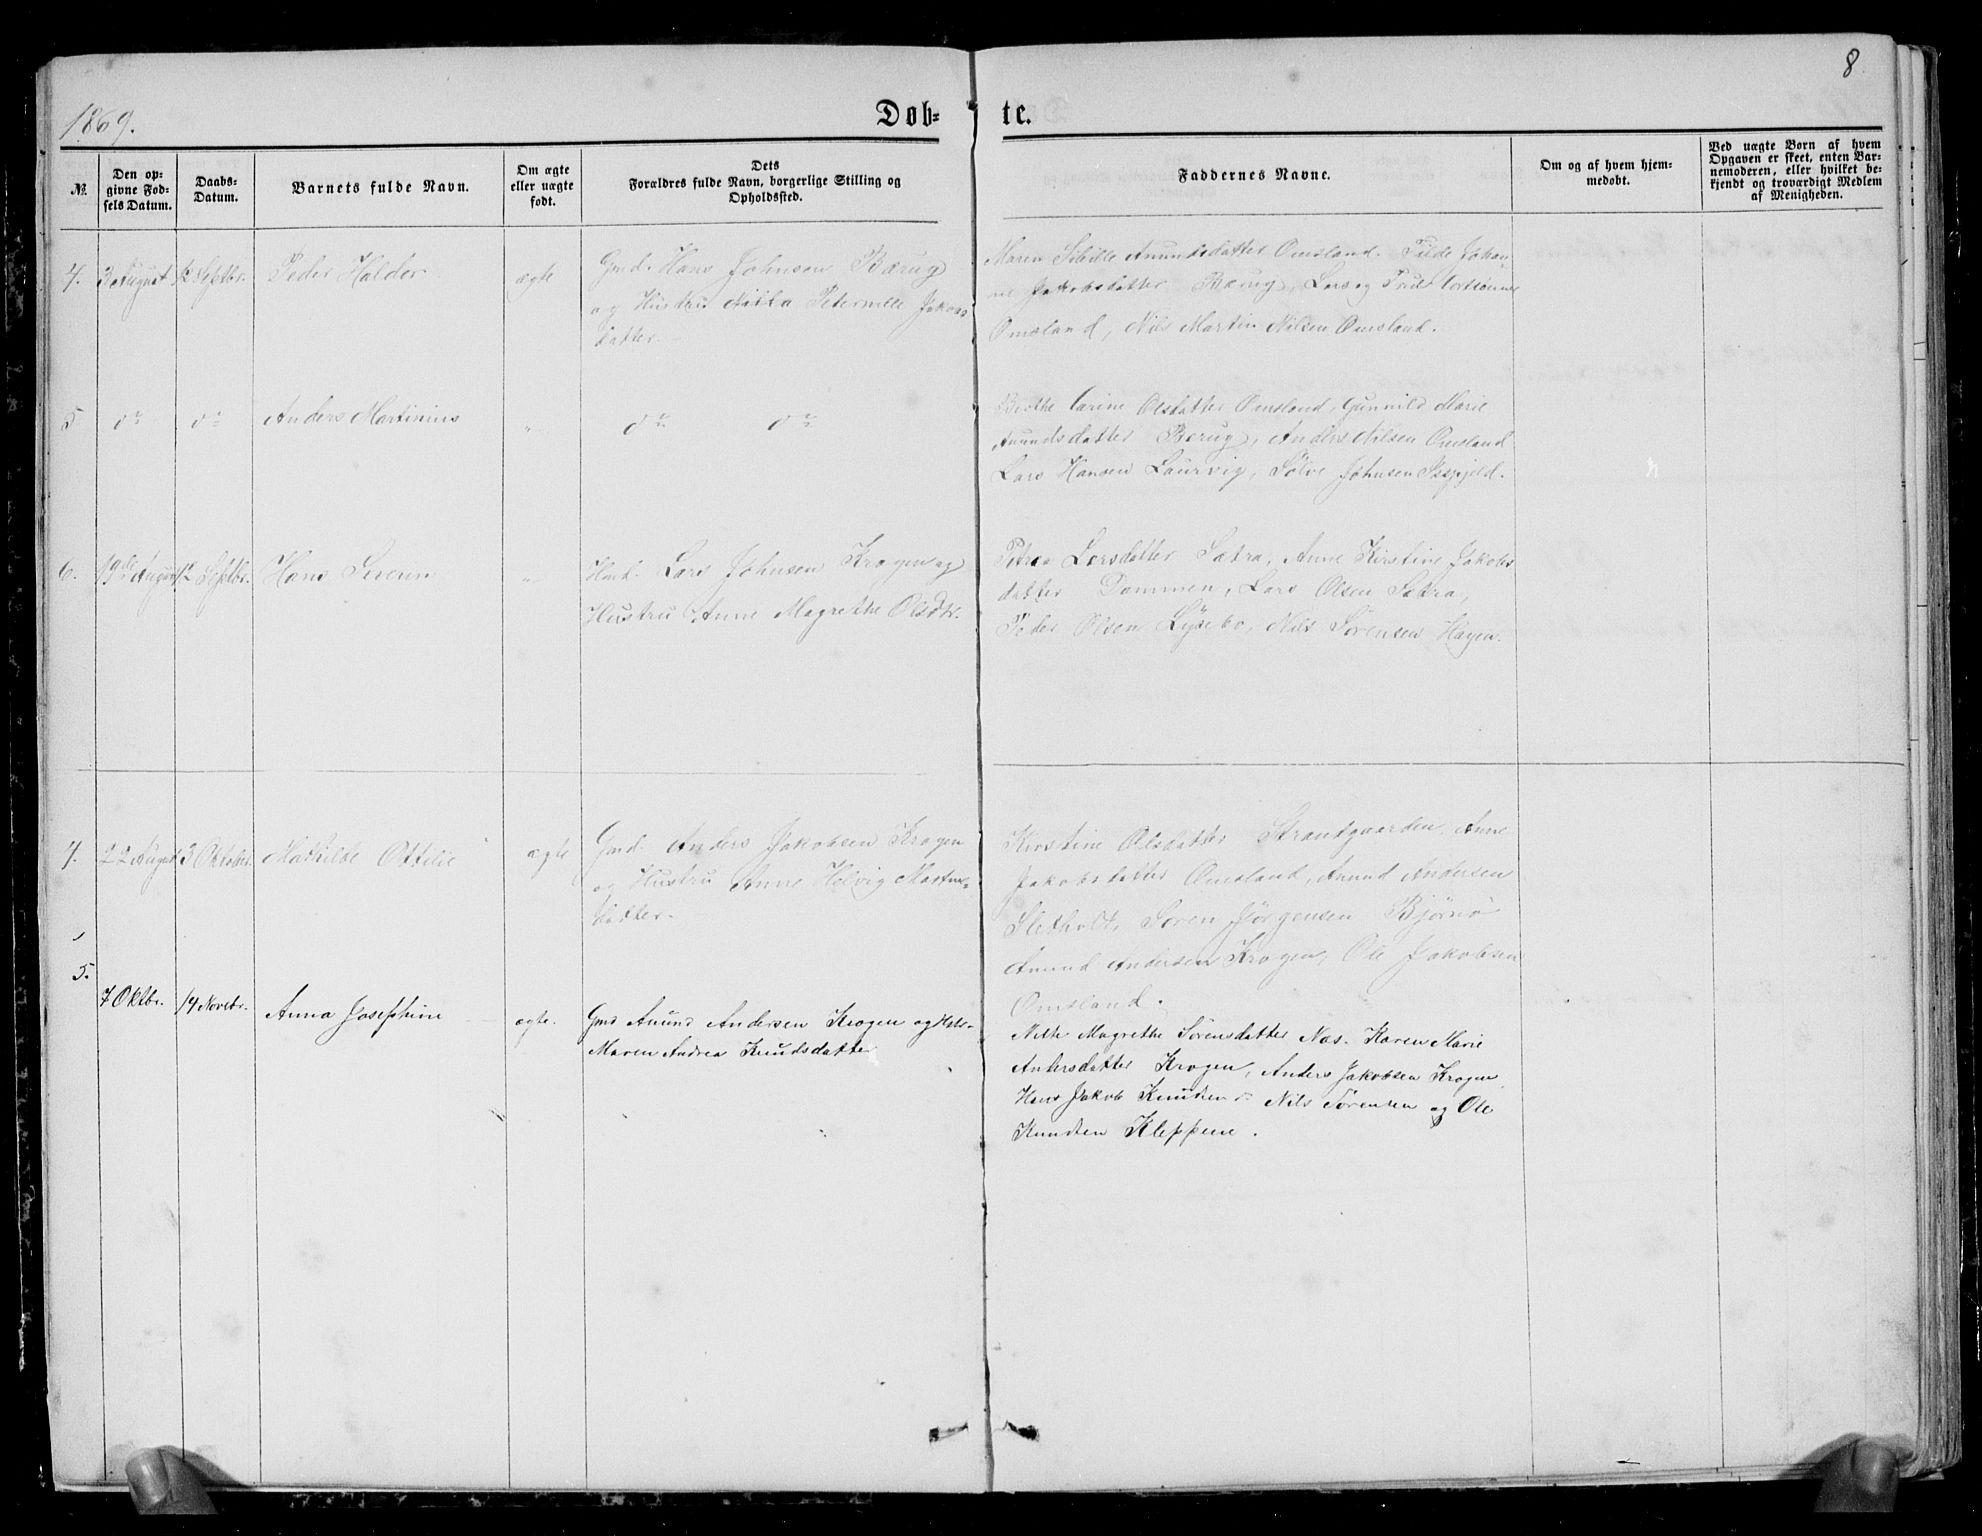 8
1869.
Døb-
te.
№.
Den op-
givne Fød-
sels Datum.
Daabs-
Datum.
Barnets fulde Navn.
Om ægte
eller uægte
født.
Dets
Forældres fulde Navn, borgerlige Stilling og
Opholdssted.
Faddernes Navne.
Om og af hvem hjem-
medøbt.
Ved uægte Børn af hvem
Opgaven er skeet, enten Bar-
nemoderen, eller hvilket be-
kjendt og troværdigt Medlem
af Menigheden.
4.
3 August
12 Septbr.
Peder Haldor
ægte
Gmd. Hans Johnsen Bærug
og Hustru Peternille Jakobs
datter.
Maren Sibille Anundsdatter Omsland. Tilde Johan-
ne Jakobsdatter Bærug, Lars og
Omsland, Nils Martin Nilsen Omsland.
5
do
do
Anders Martinius
"
do do
Berthe Carine Olsdatter Omsland, Gunnild Marie
Anundsdatter Bærug, Anders Nilsen Omsland
Lars Hansen Laurvig, Sølve Johnsen
6.
19de August
12 Septbr.
Hans Severin
"
Lars Johnsen Krogen og
Hustru Anne Magrethe Olsdtr.
Petrea Larsdatter Sætra, Anne Kirstine Jakobs
datter Dammen, Lars Olsen Sætra,
Peder Olsen Lysebo, Nils Sørensen Hagen.
4.
22 August
3 Oktober
Mathilde Ottilie
ægte
Gmd. Anders Jakobsen Krogen
og Hustru Anne Helvig
datter.
Kirstine Olsdatter Strandgaarden, Anne
Jakobsdatter Omsland, Anund Andersen
Sletholt, Søren Jørgensen Bjørnø
Anund Andersen Krogen, Ole Jakobsen
Omsland.
5.
7 Oktbr.
14 Novebr.
Anna Josephine
ægte.
Gmd Anund Andersen Krogen og Hstr.
Maren Andrea Knudsdatter
Magrethe Sørensdatter Næs. Karen Marie
Andersdatter Krogen, Anders Jakobsen Krogen,
Hans Jakob Knudsen Nils Sørensen og Ole
Knudsen Kleppene.